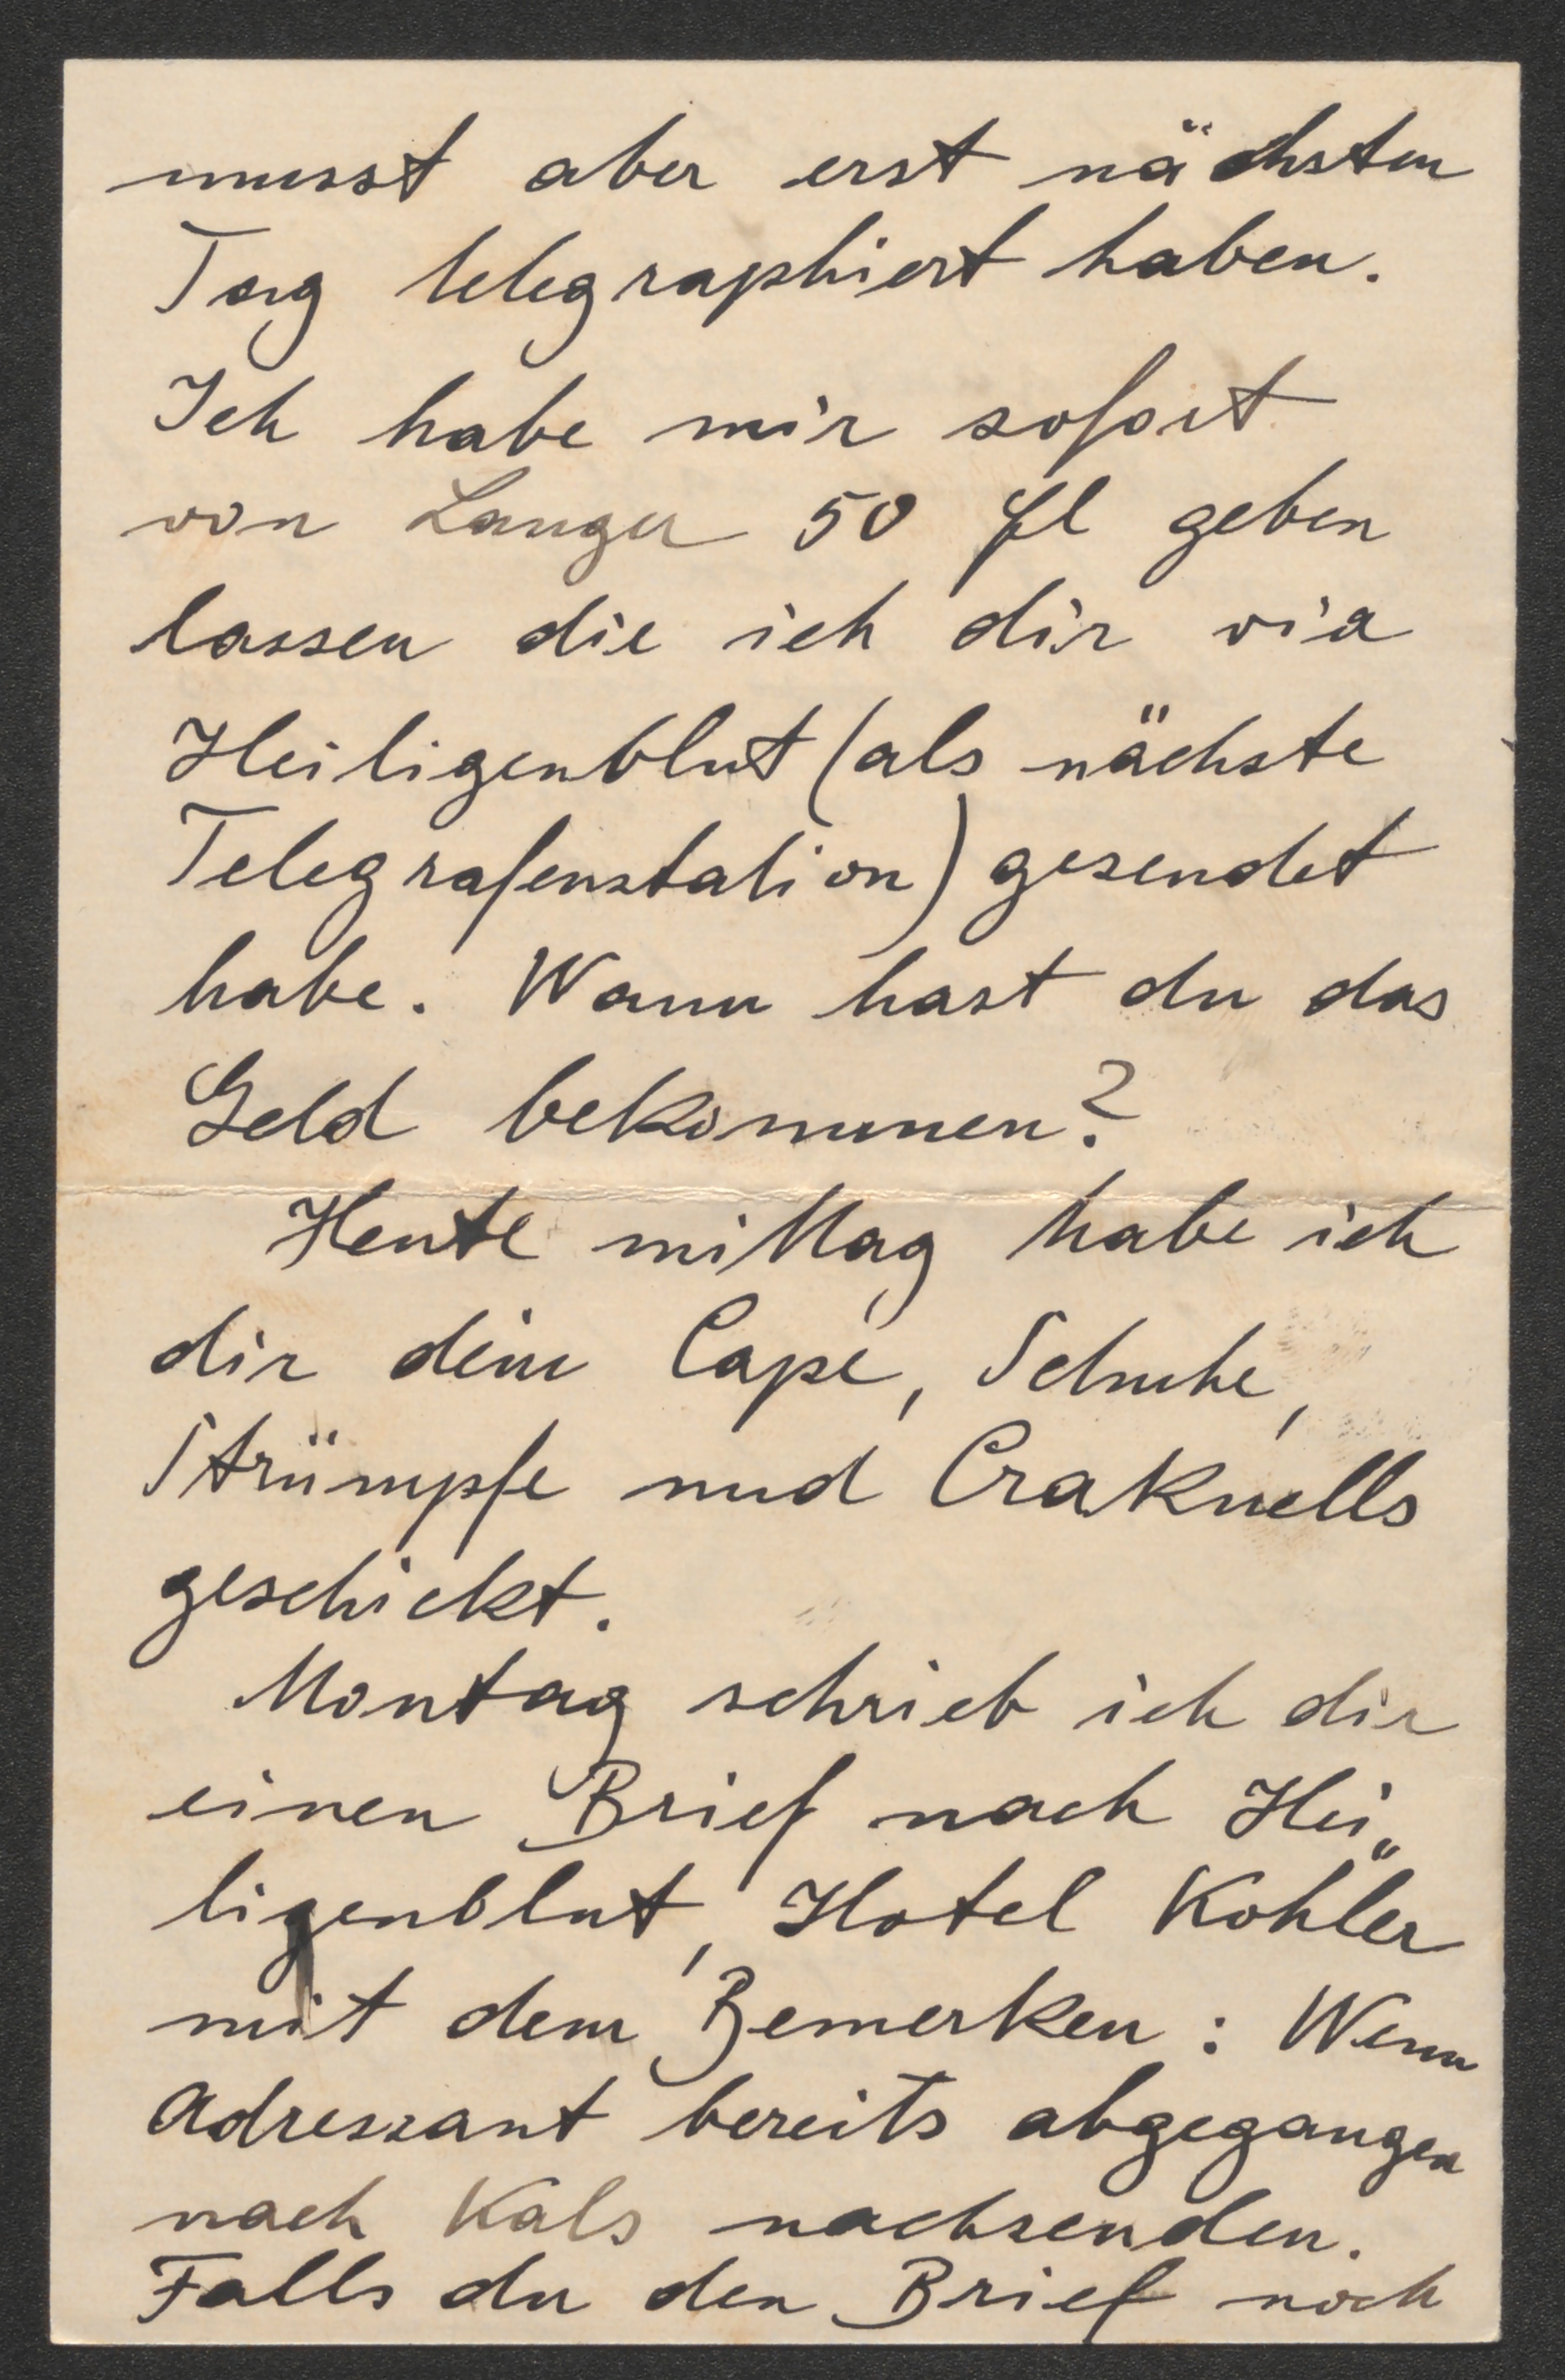 musst aber erst nächsten
Tag telegraphiert haben.
Ich habe mir sofort
von Langer 50 fl geben
lassen die ich dir via
Heiligenblut (als nächste
Telegrafenstation) gesendet
habe. Wann hast du das
Geld bekommen?
Heute mittag habe ich
dir dein Cape, Schuhe,
Strümpfe und Craknells
geschickt.
Montag schrieb ich dir
einen Brief nach Hei„
ligenblut, Hotel Kohler
mit dem Bemerken: Wenn
Adressant bereits abgegangen
nach Kals nachsenden.
Falls du den Brief noch